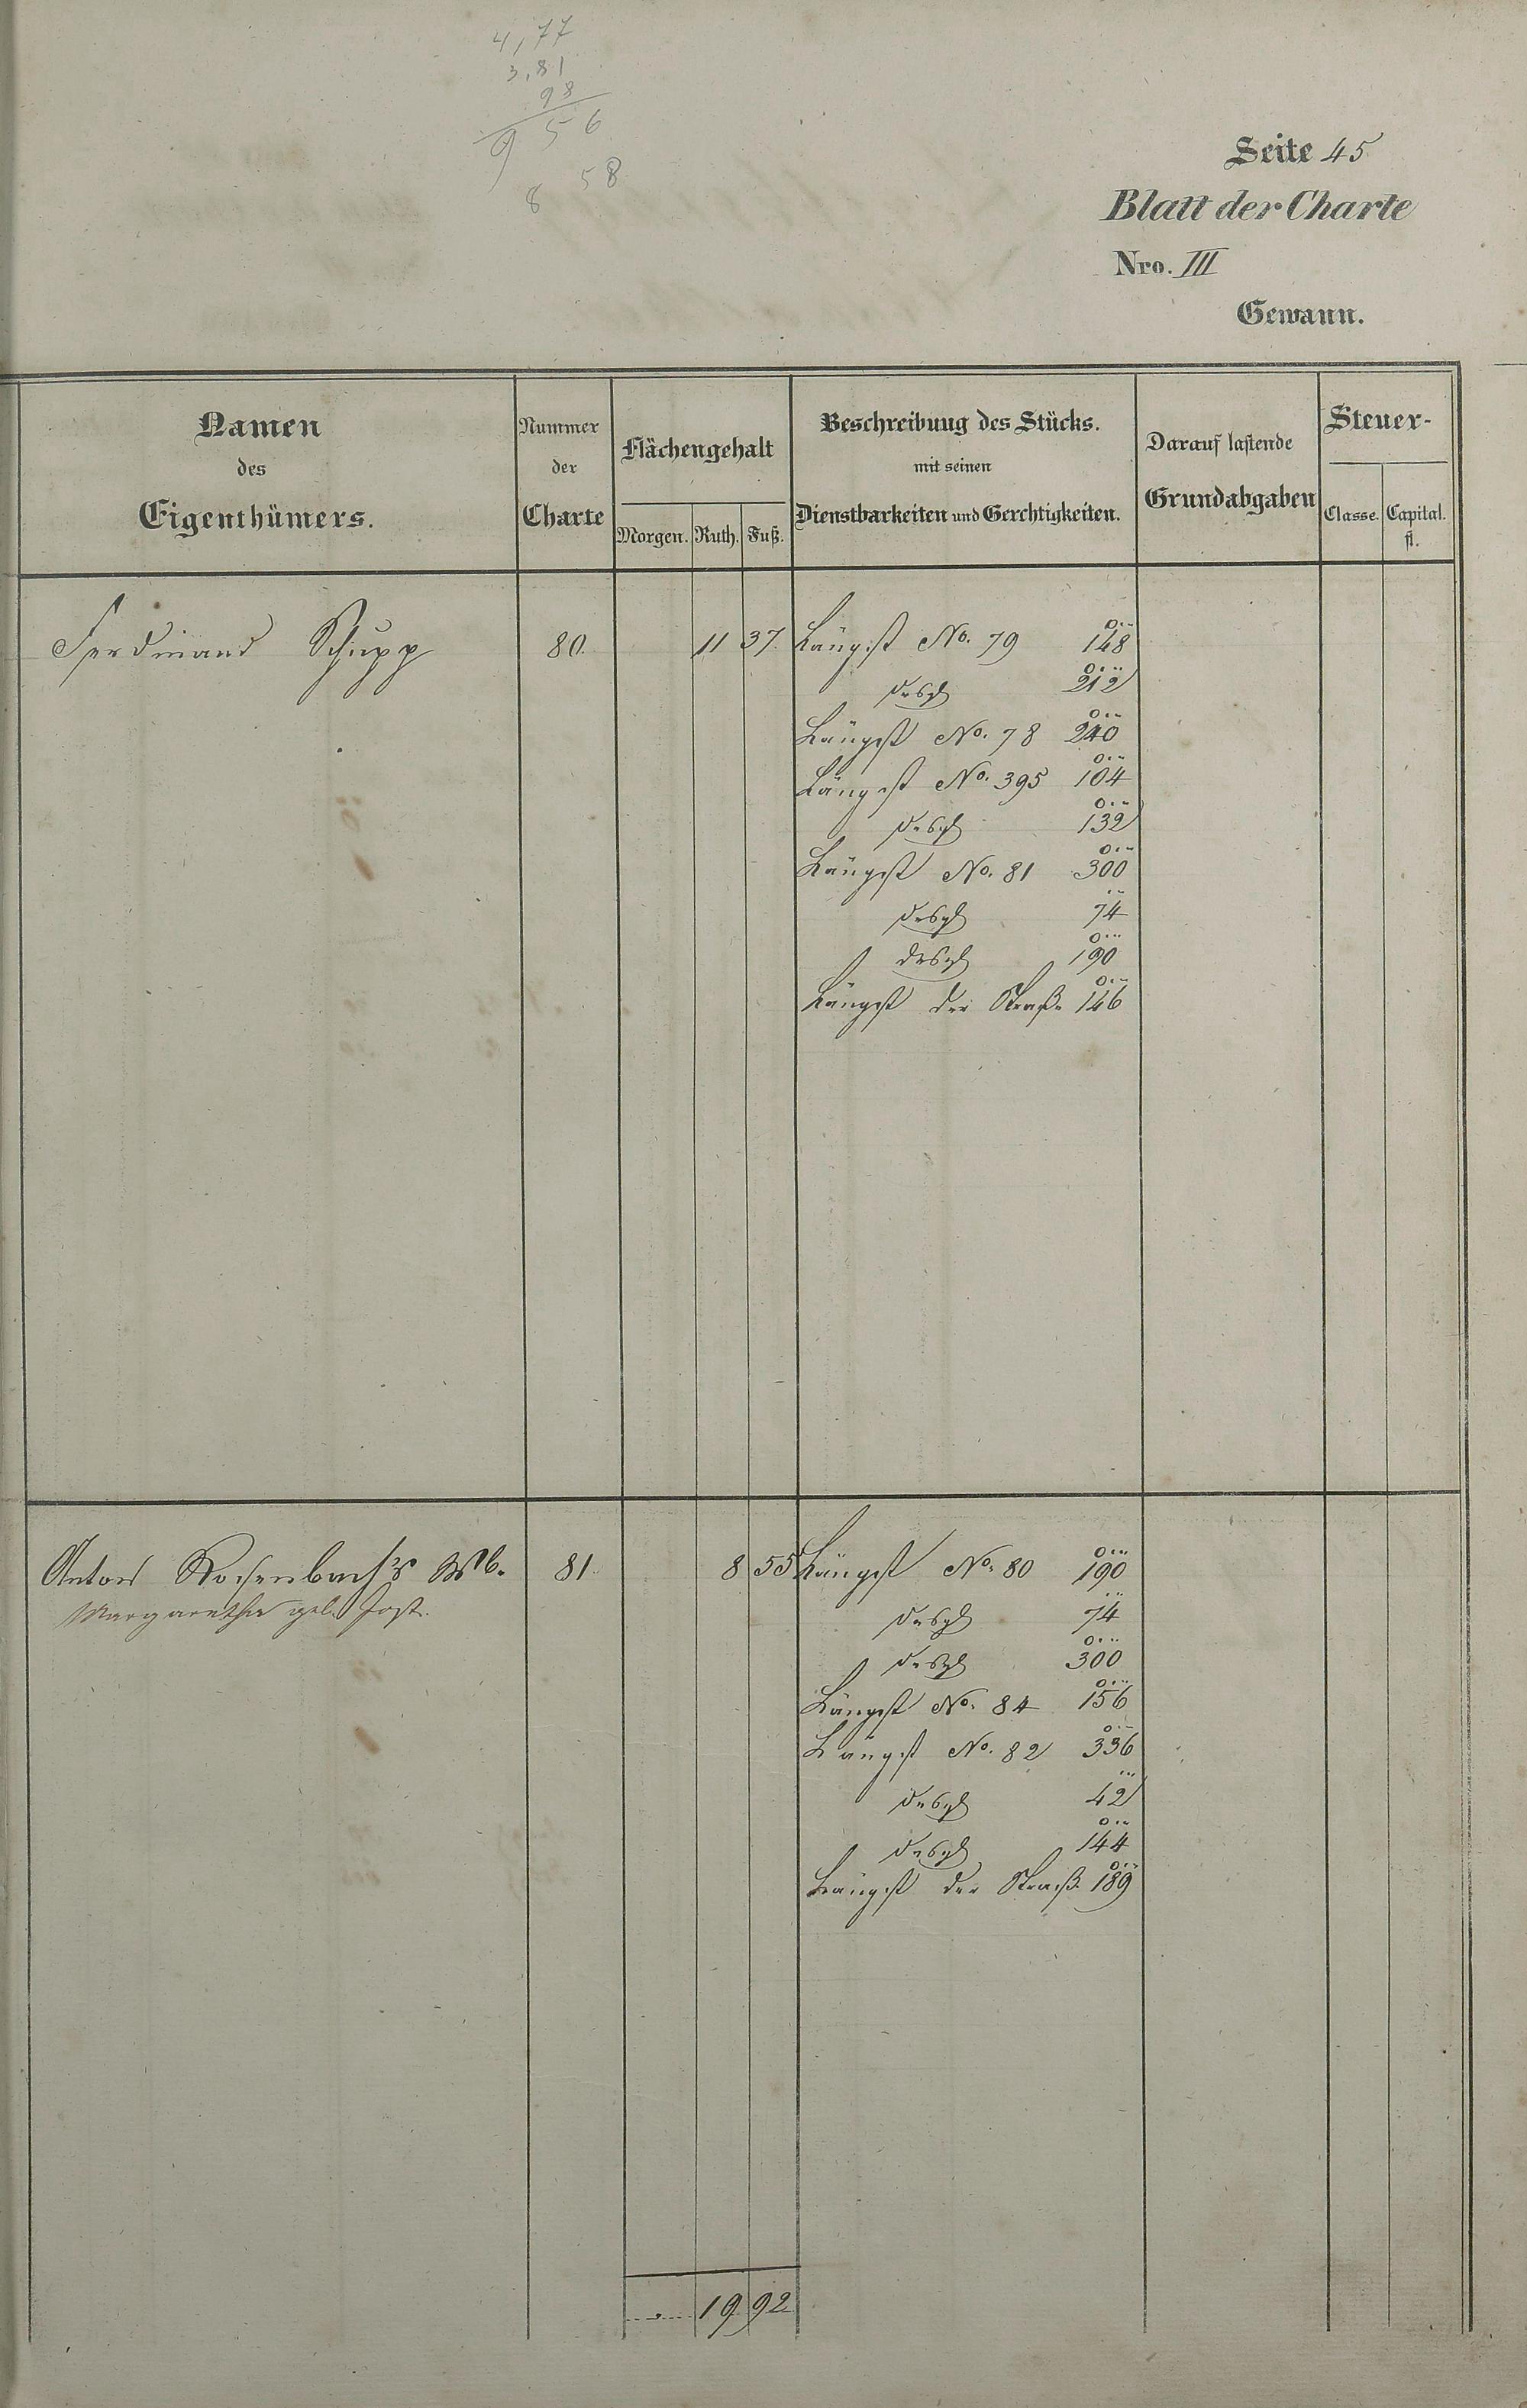 4,77
3,81
98
9 56
8 58
Seite 45
Blatt der Charte
Nro. III
Gewann.
Namen des Eigenthümers.
Nummer der Charte
Flächengehalt
Morgen. Ruth. Fuß.
Beschreibung des Stücks.
mit seinen
Dienstbarkeiten und Gerechtigkeiten.
Darauf lastende
Grundabgaben
Steuer-
Classe. Capital.
fl.
Ferdinand Schupp 80. 11 37. Längst No. 79 148
desgl 212
Längst No. 78 240
Längst No. 395 104
desgl 132
Längst No. 81 300
desgl 74
desgl 190
Längst der Straße 146
Anton Rosenbach's Wb. 81. 8 55 Längst No. 80 190
Margaretha geb. Jost.
desgl 74
desgl 300
Längst No. 84 156
Längst No. 82 336
desgl 42
desgl 144
Längst der Straß. 189
19 92